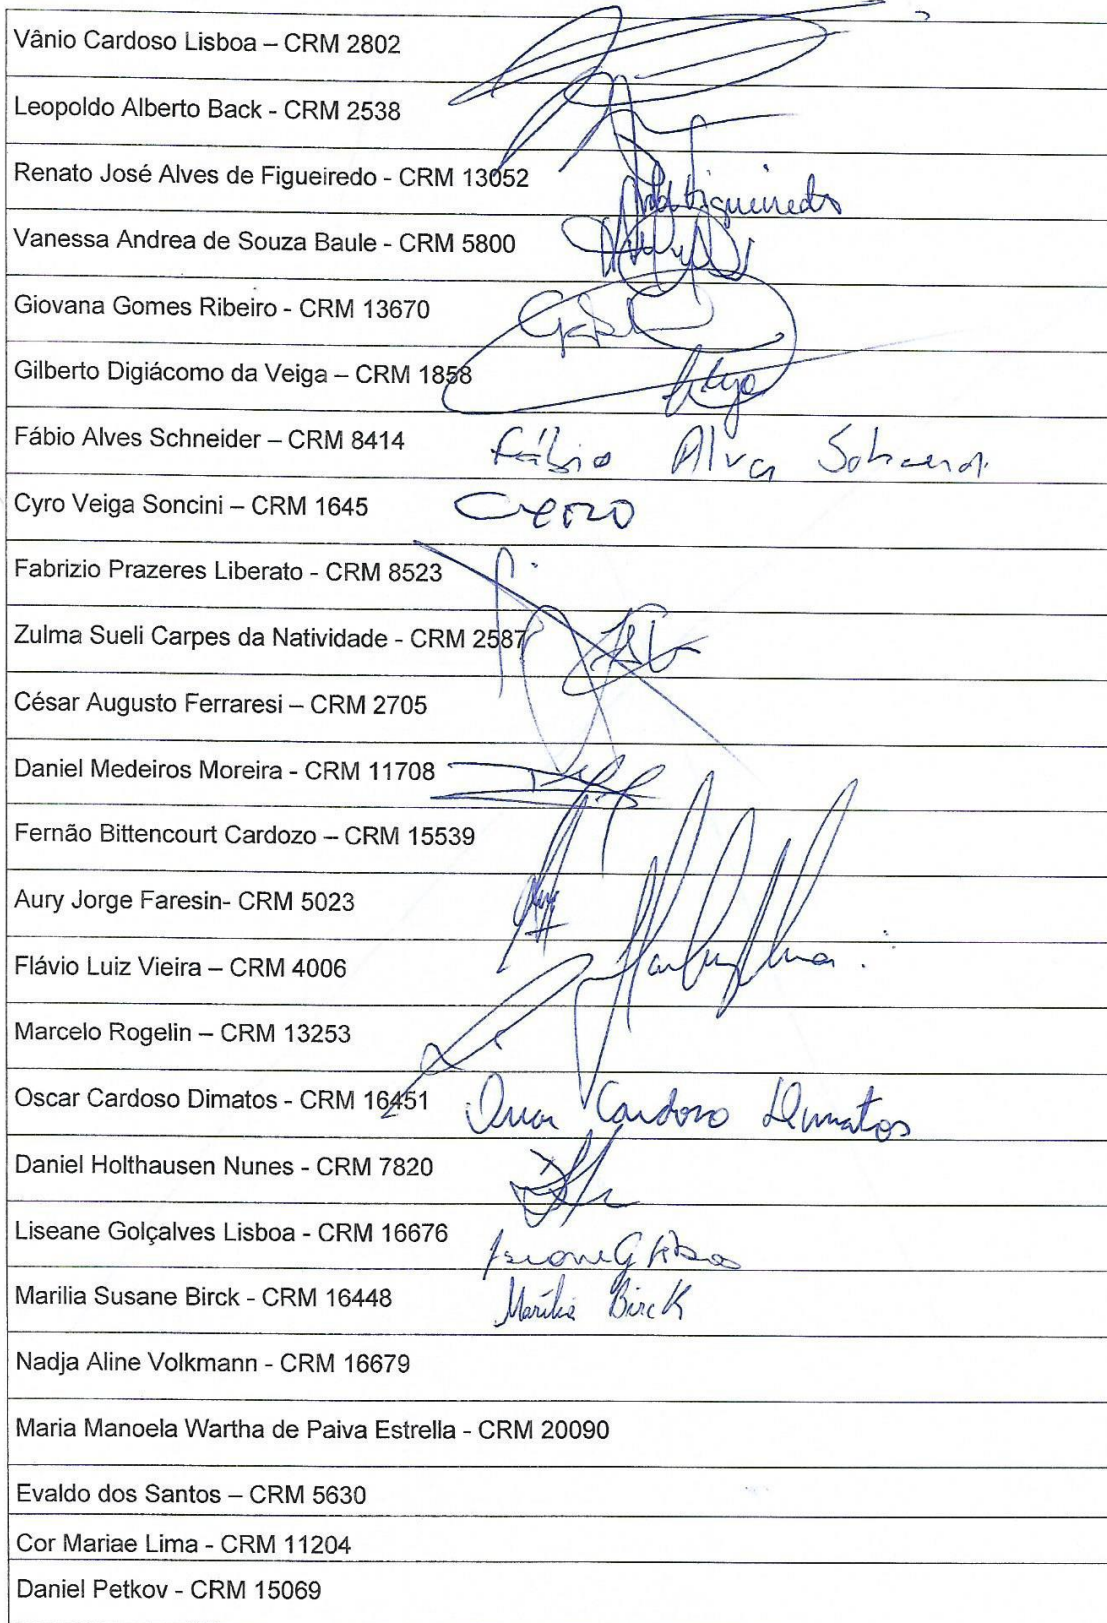 Vânio Cardoso Lisboa – CRM 2802
Leopoldo Alberto Back - CRM 2538
Renato José Alves de Figueiredo - CRM 13052
Figueiredo
Vanessa Andrea de Souza Baule - CRM 5800
Giovana Gomes Ribeiro - CRM 13670
Gilberto Digiácomo da Veiga – CRM 1858
Fábio Alves Schneider – CRM 8414 Fábio
Cyro Veiga Soncini – CRM 1645
Fabrizio Prazeres Liberato - CRM 8523
Zulma Sueli Carpes da Natividade - CRM 2587
César Augusto Ferraresi – CRM 2705
Daniel Medeiros Moreira - CRM 11708
Fernão Bittencourt Cardozo – CRM 15539
Aury Jorge Faresin- CRM 5023
Flávio Luiz Vieira – CRM 4006
Marcelo Rogelin – CRM 13253
Oscar Cardoso Dimatos - CRM 16451 Oscar Cardoso Dimatos
Daniel Holthausen Nunes - CRM 7820
Liseane Golçalves Lisboa - CRM 16676
Marilia Susane Birck - CRM 16448 Marilia Birck
Nadja Aline Volkmann - CRM 16679
Maria Manoela Wartha de Paiva Estrella - CRM 20090
Evaldo dos Santos – CRM 5630
Cor Mariae Lima - CRM 11204
Daniel Petkov - CRM 15069